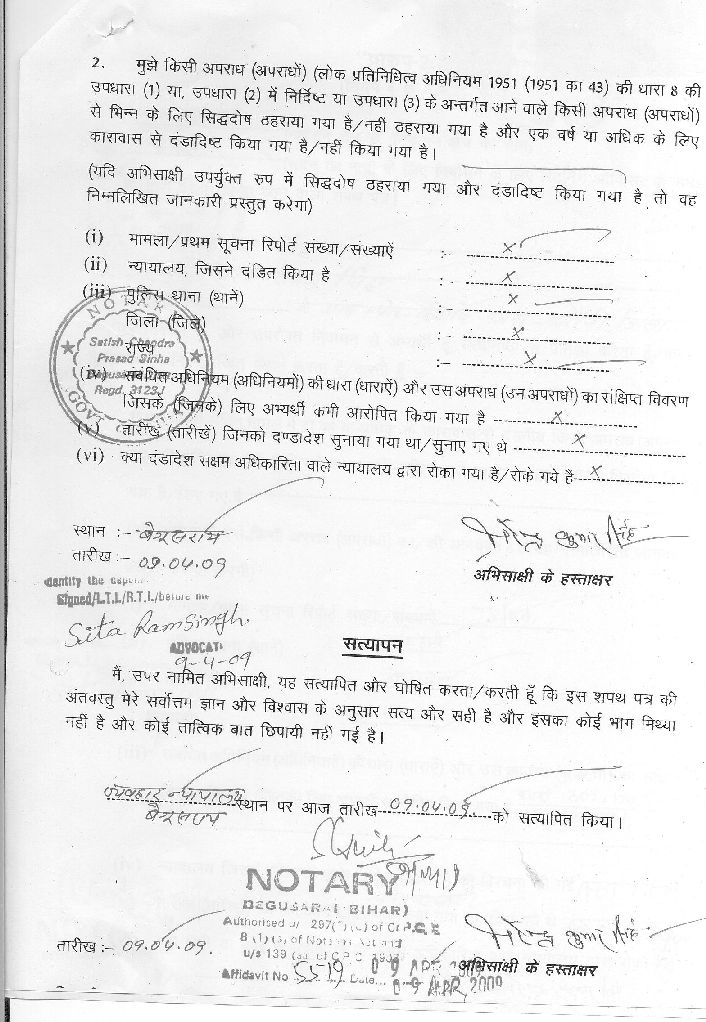 2. मुझे किसी अपराध (अपराधों) (लोक प्रतिनिधित्व अधिनियम 1951 (1951 का 43) की धारा 8 की
उपधारा (1) या, उपधारा (2) में निर्दिष्ट या उपधारा (3) के अन्तर्गत आने वाले किसी अपराध (अपराधों)
से भिन्न के लिए सिद्धदोष ठहराया गया है/नहीं ठहराया गया है और एक वर्ष या अधिक के लिए
कारावास से दंडादिष्ट किया गया है/नहीं किया गया है।
(यदि अभिसाक्षी उपर्युक्त रुप में सिद्धदोष ठहराया गया और दंडादिष्ट किया गया है तो वह
निम्नलिखित जानकारी प्रस्तुत करेगा)
(i) मामला/प्रथम सूचना रिपोर्ट संख्या/संख्याऐं : x
(ii) न्यायालय, जिसने दंडित किया है : x
(iii) पुलिस थाना (थानें) : x
जिला (जिले) : x
राज्य : x
NOTARY
Satish Chandra
Prasad Sinha
Begusarai
Regd. 3123/
GOVT
(iv) संबंधित अधिनियम (अधिनियमों) की धारा (धाराऐं) और उस अपराध (उन अपराधों) का संक्षिप्त विवरण
जिसके (जिनके) लिए अभ्यर्थी कभी आरोपित किया गया है x
(v) तारीख (तारीखें) जिनको दण्डादेश सुनाया गया था/सुनाए गए थे x
(vi) क्या दंडादेश सक्षम अधिकारिता वाले न्यायालय द्वारा रोका गया है/रोके गये है x
स्थान :- बेगूसराय
तारीख :- 09.04.09
अभिसाक्षी के हस्ताक्षर
Identity the
Signed/L.T.I./R.T.I./before me
Sita Ram Singh.
ADVOCATE
9-4-09
सत्यापन
मैं, उपर नामित अभिसाक्षी, यह सत्यापित और घोषित करता/करती हूँ कि इस शपथ पत्र की
अंतवस्तु मेरे सर्वोत्तम ज्ञान और विश्वास के अनुसार सत्य और सही है और इसका कोई भाग मिथ्या
नहीं है और कोई तात्विक बात छिपायी नहीं गई है।
व्यवहार न्यायालय बेगूसराय स्थान पर आज तारीख 09.04.09. को सत्यापित किया।
NOTARY
BEGUSARAI (BIHAR)
Authorised u/ 297(1)(c) of Cr.P.C.
8 (1) (e) of Notaries Act and
u/s 139 of C.P.C. 1908
Affidavit No 5519 Date... 09 APR 2009
तारीख :- 09.04.09.
अभिसाक्षी के हस्ताक्षर